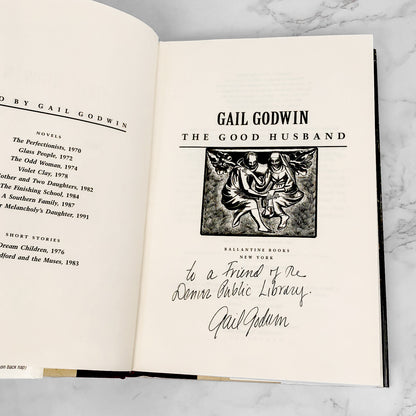 O BY GAIL GODWIN
NOVELS
The Perfectionists, 1970
Glass People, 1972
The Odd Woman, 1974
Violet Clay, 1978
other and Two Daughters, 1982
The Finishing School, 1984
A Southern Family, 1987
r Melancholy's Daughter, 1991
SHORT STORIES
Dream Children, 1976
dford and the Muses, 1983
GAIL GODWIN
THE GOOD HUSBAND
BALLANTINE BOOKS
NEW YORK
to a Friend of the
Denver Public Library.
Gail Godwin